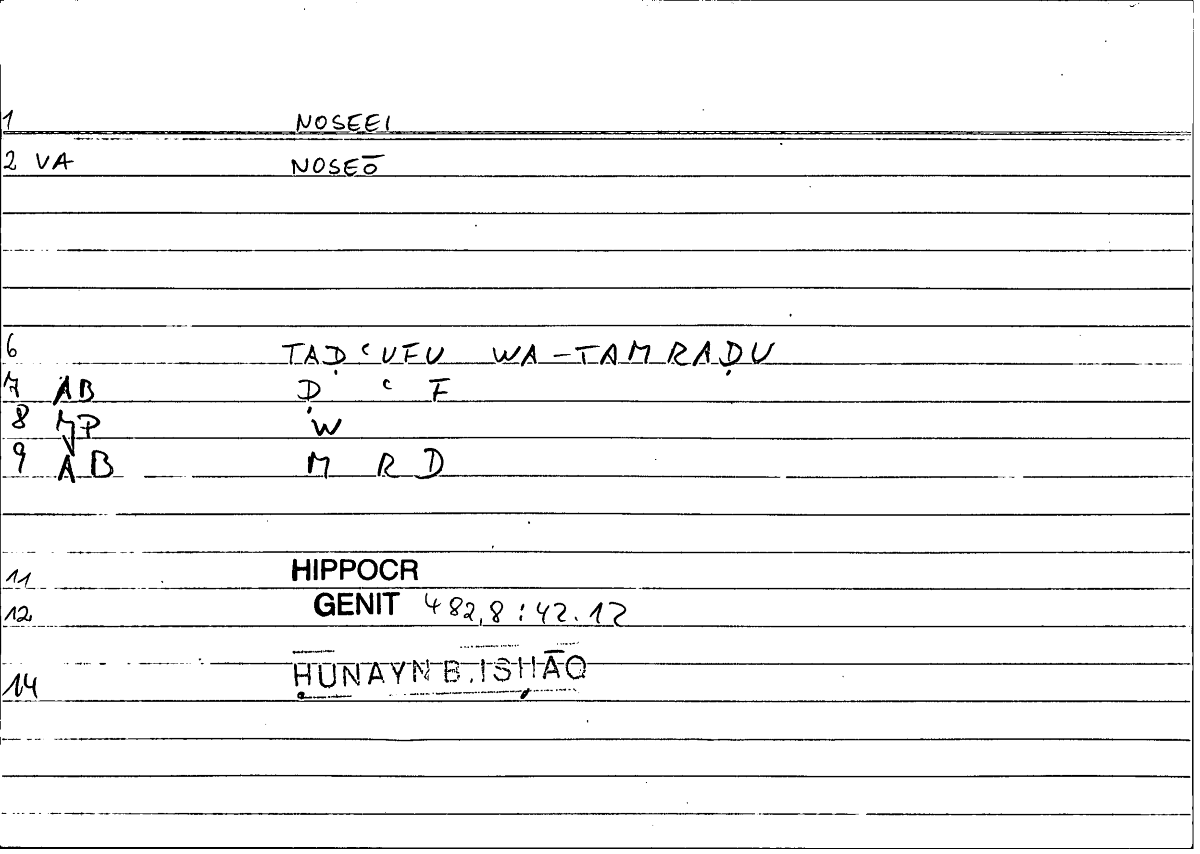 1 NOSEEI
2 VA NOSEŌ
6 TAḌʿUFU WA-TAMRAḌU
7 AB Ḍ ʿ F
8 MP W
9 AB M R Ḍ
11 HIPPOCR
12 GENIT 482,8:42.12
14 ḤUNAYN B. ISḤĀQ